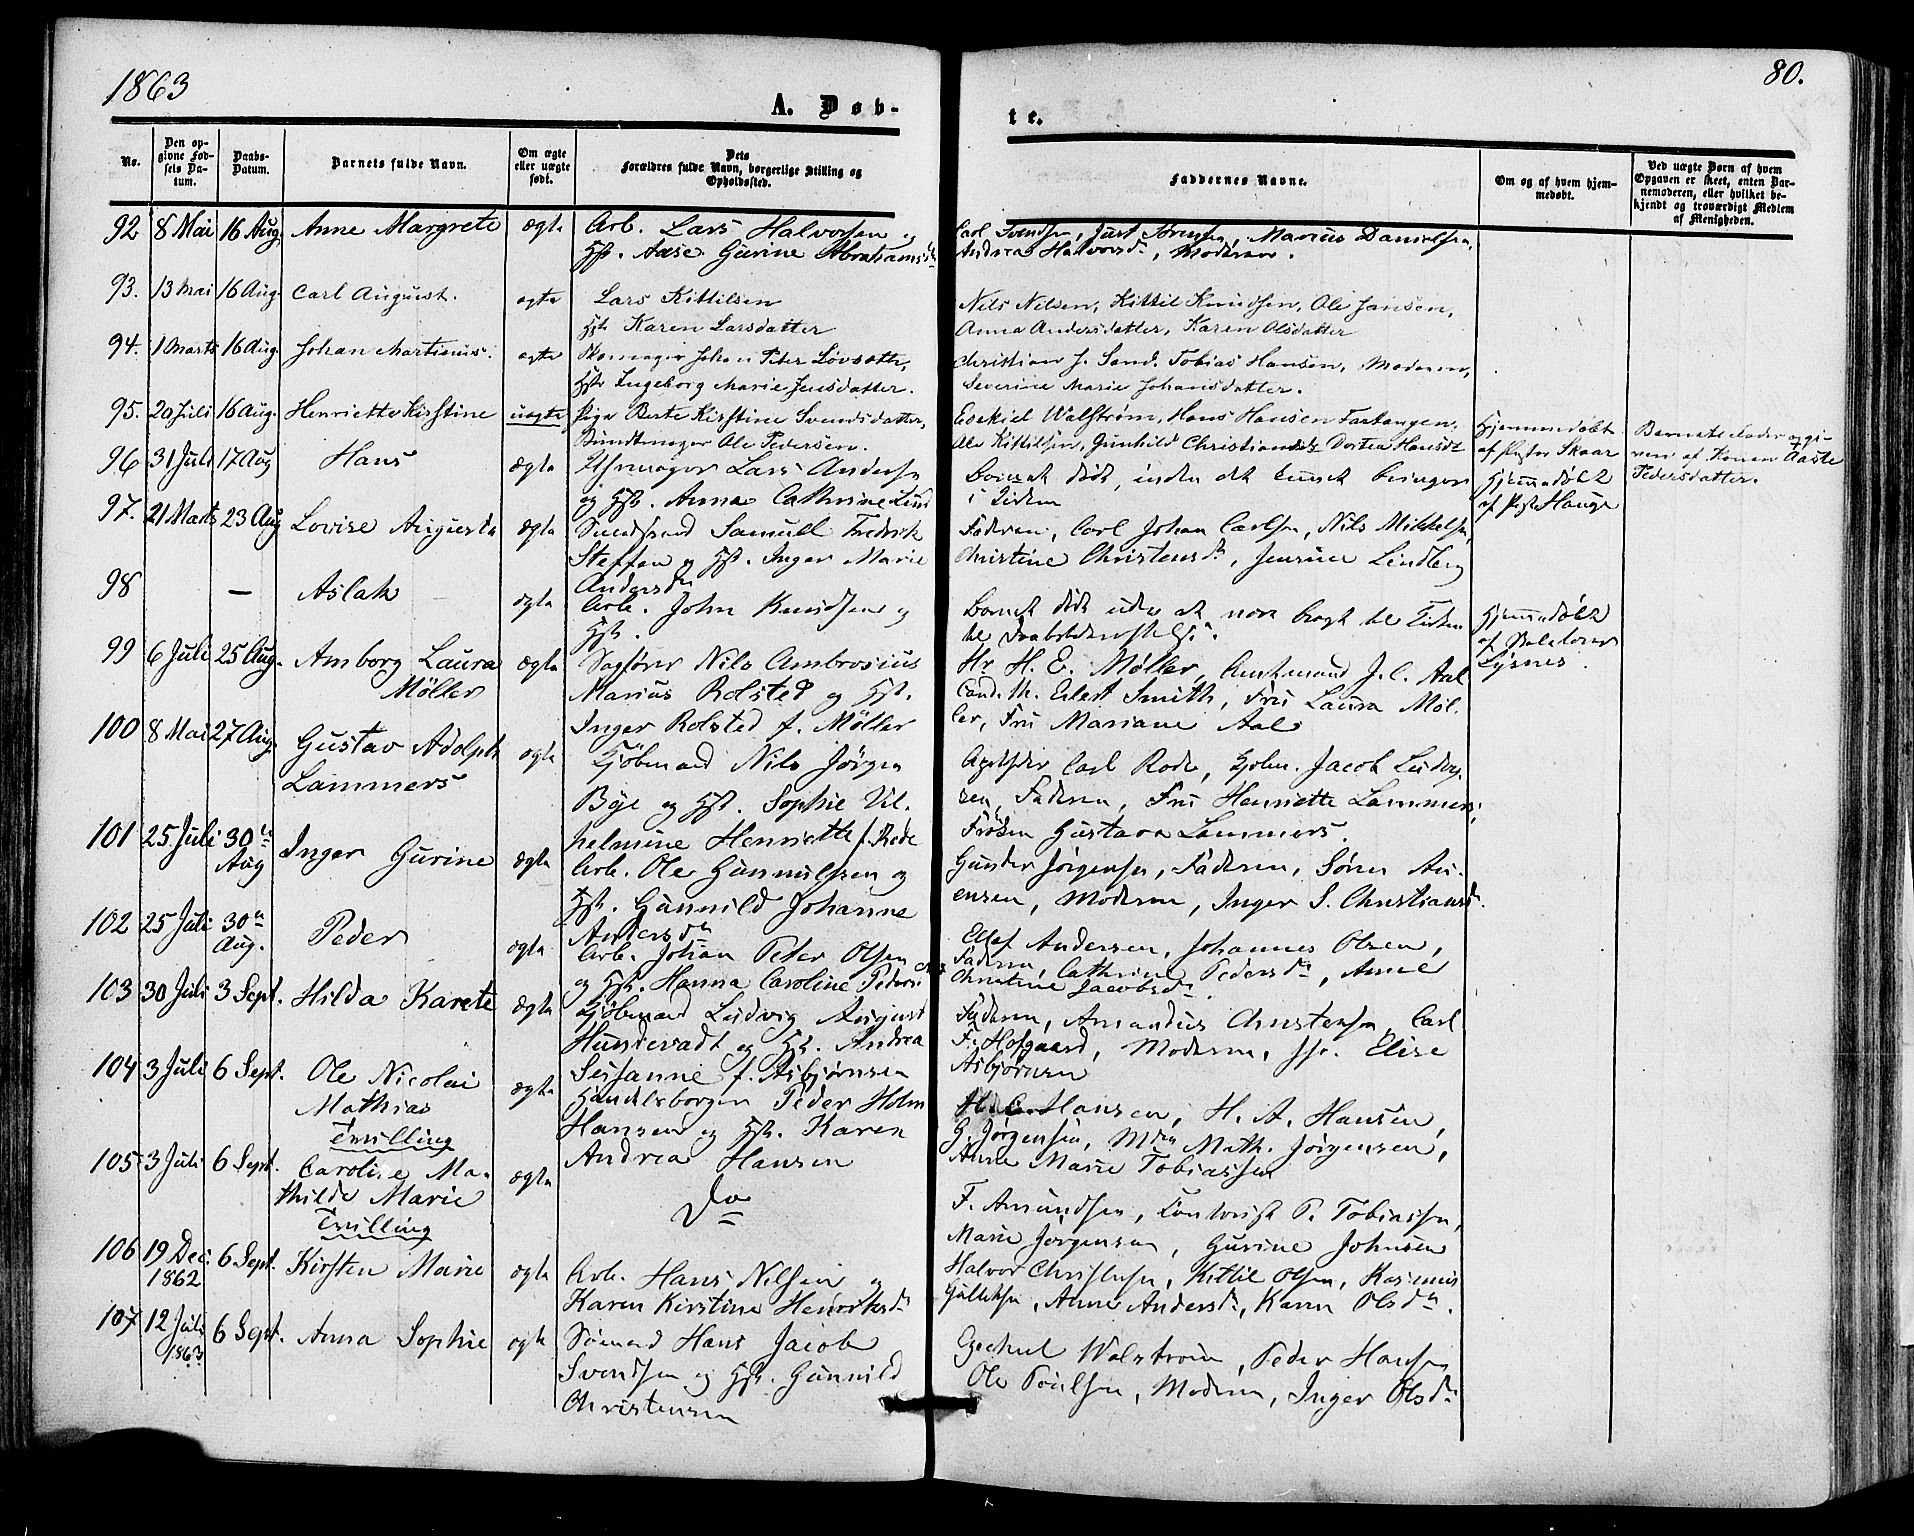 1863
80.
A. Døb-
te.
No.
Den op-
givne Fød-
sels Da-
tum.
Daabs-
Datum.
Barnets fulde Navn.
Om ægte
eller uægte
født.
Dets
Forældres fulde Navn, borgerlige Stilling og
Opholdssted.
Faddernes Navne.
Om og af hvem hjem-
medøbt.
Ved uægte Børn af hvem
Opgaven er skeet, enten Bar-
nemoderen, eller hvilket be-
kjendt og troværdigt Medlem
af Menigheden.
92 8 Mai 16 Aug. Anne Margrete ægte Arb. Lars Halvorsen og
Hst. Aase Gurine Abrahamsdr
Carl Svendsen, Just Sørensen, Marius Danielsen,
Andrea Halvorsdr, Moderen.
93. 13 Mai 16 Aug. Carl August. ægte Lars Kittilsen
Hst. Karen Larsdatter
Nils Nilsen, Kittil Knudsen, Ole Jansen,
Anna Andersdatter, Karen Olsdatter
94. 1 Marts 16 Aug. Johan Martinus. ægte Skomager Johan Peter Løvsæth,
Hst. Ingeborg Marie Jensdatter.
Christian J. Sand. Tobias Hansen, Moderen,
Severine Marie Johansdatter.
95. 20 Juli 16 Aug. Henriette Kirstine uægte Pige Berte Kirstine Svendsdatter,
Bundtmager Ole Pedersen.
Ezekiel Walstrøm, Hans Hansen Fartangen,
Ole Kittilsen, Gunhild Christiansdr Dortea Hansdr
Hjemmedøbt
af Pastor Skaar
Barnets Fader opgi-
ven af Konen Aaste
Pedersdatter.
96 31 Juli 17 Aug Hans ægte Uhrmager Lars Andersen
og Hst. Anna Cathrine Lund
Barnet døde, inden det kunde bringes
i Kirken
Hjemmedøbt
af Past Hauge
97. 21 Marts 23 Aug Lovise Augusta ægte Samuel Fredrik
Steffen og Hst. Inger Marie
Andersdr
Faderen, Carl Johan Carlsen, Nils Mikkelsen,
Christine Christensdr, Jensine Lindberg
98 — Aslak ægte Arb. John Knudsen og
Hst.
Barnet døde uden at være bragt til Kirken
til Daabsbekræftelse.
Hjemmedøbt
af
Lysnes.
99 6 Juli 25 Aug. Amborg Laura
Møller
ægte Sagfører Nils Ambrosius
Marius Rolsted og Hst.
Inger Rolsted f. Møller
Hr. H. E. Møller, Amtmand J. C. Aal
Cand. th. Eilert Smith, Fru Laura Møl-
ler, Fru Mariane Aal
100 8 Mai 27 Aug. Gustav Adolph
Lammers
ægte Kjøbmand Nils Jørgen
Bøje og Hst. Sophie Vil-
helmine Henriette f. Rode
Apotheker Carl Rode, Kjøbm. Jacob Luder-
sen, Faderen, Fru Henriette Lammers,
Frøken Gustava Lammers.
101 25 Juli 30te
Aug
Inger Gurine ægte Arb. Ole Gunnulfsen og
Hst. Gunnild Johanne
Andersdr
Gunder Jørgensen, Faderen, Søren An-
ensen, Moderen, Inger S. Christiansd.
102 25 Juli 30te
Aug.
Peder ægte Arb. Johan Peter Olsen
og Hst. Hanna Caroline Peders
Ellef Andersen, Johannes Olsen,
Faderen, Cathrine Pedersdr, Anne
Christine Jacobsdr.
103 30 Juli 3 Sept. Hilda Karete ægte Kjøbmand Ludvig August
Hundevadt og Hst. Andrea
Susanne f. Asbjørnsen
Faderen, Amandus Christensen, Carl
F. Hofgaard, Moderen, Jfr. Elise
Asbjørnsen
104 3 Juli 6 Sept. Ole Nicolai
Mathias
Tvilling
ægte Handelsborger Peder Holm
Hansen og Hst. Karen
Andrea Hansen
Hansen, H. A. Hansen,
G. Jørgensen, Mdm Math. Jørgensen,
Anne Marie Tobiassen
105 3 Juli 6 Sept. Caroline Ma-
thilde Marie
Tvilling
ægte Do
F. Amundsen, Kontorist P. Tobiassen,
Marie Jørgensen, Gurine Johnsen
106 19 Dec.
1862
6 Sept. Kirsten Marie ægte Arb. Hans Nilsen og
Karen Kirstine Henriksdr
Halvor Christensen, Kittil Olsen, Rasmus
Gulliksen, Anne Andersdr, Karen Olsdr.
107 12 Juli
1863
6 Sept. Anna Sophie ægte Sømand Hans Jacob
Svendsen og Hst. Gunnild
Christensen
Ezechiel Walstrøm, Peder Hansen
Ole Poulsen, Moderen, Inger Olsdr